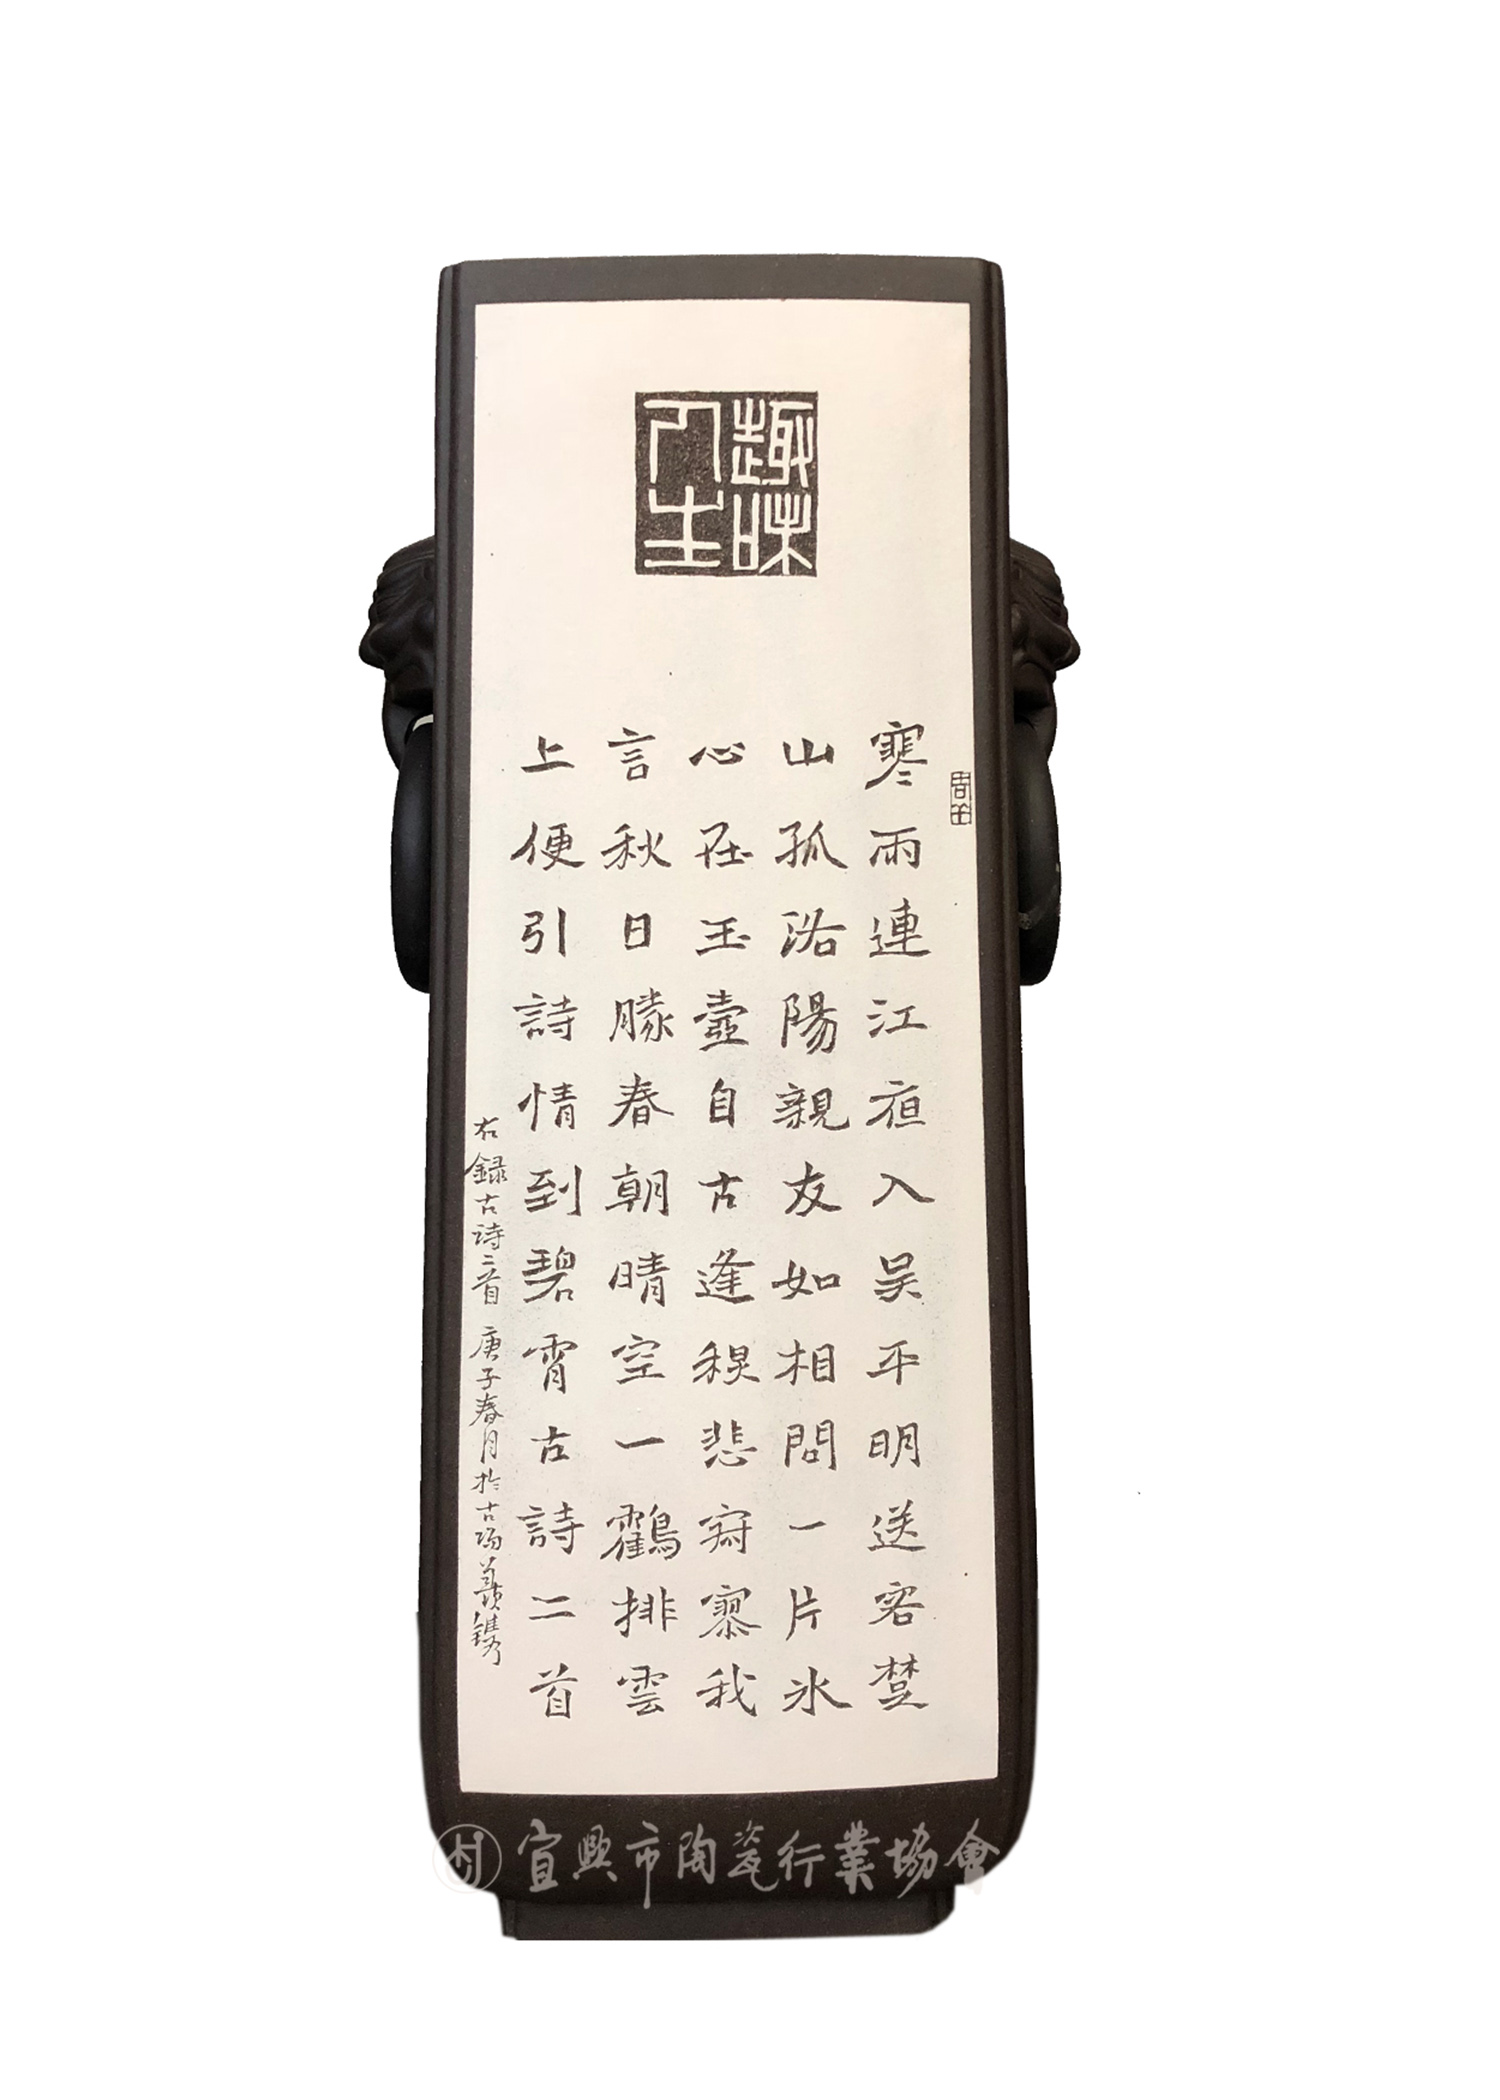 趣味人生
寒雨連江夜入吴平明送客楚
山孤洛陽親友如相問一片冰
心在玉壺自古逢秋悲寂寥我
言秋日勝春朝晴空一鶴排雲
上便引詩情到碧霄古詩二首
右録古詩二首 庚子春月於古陽羨鐫
宜興市陶瓷行業協會